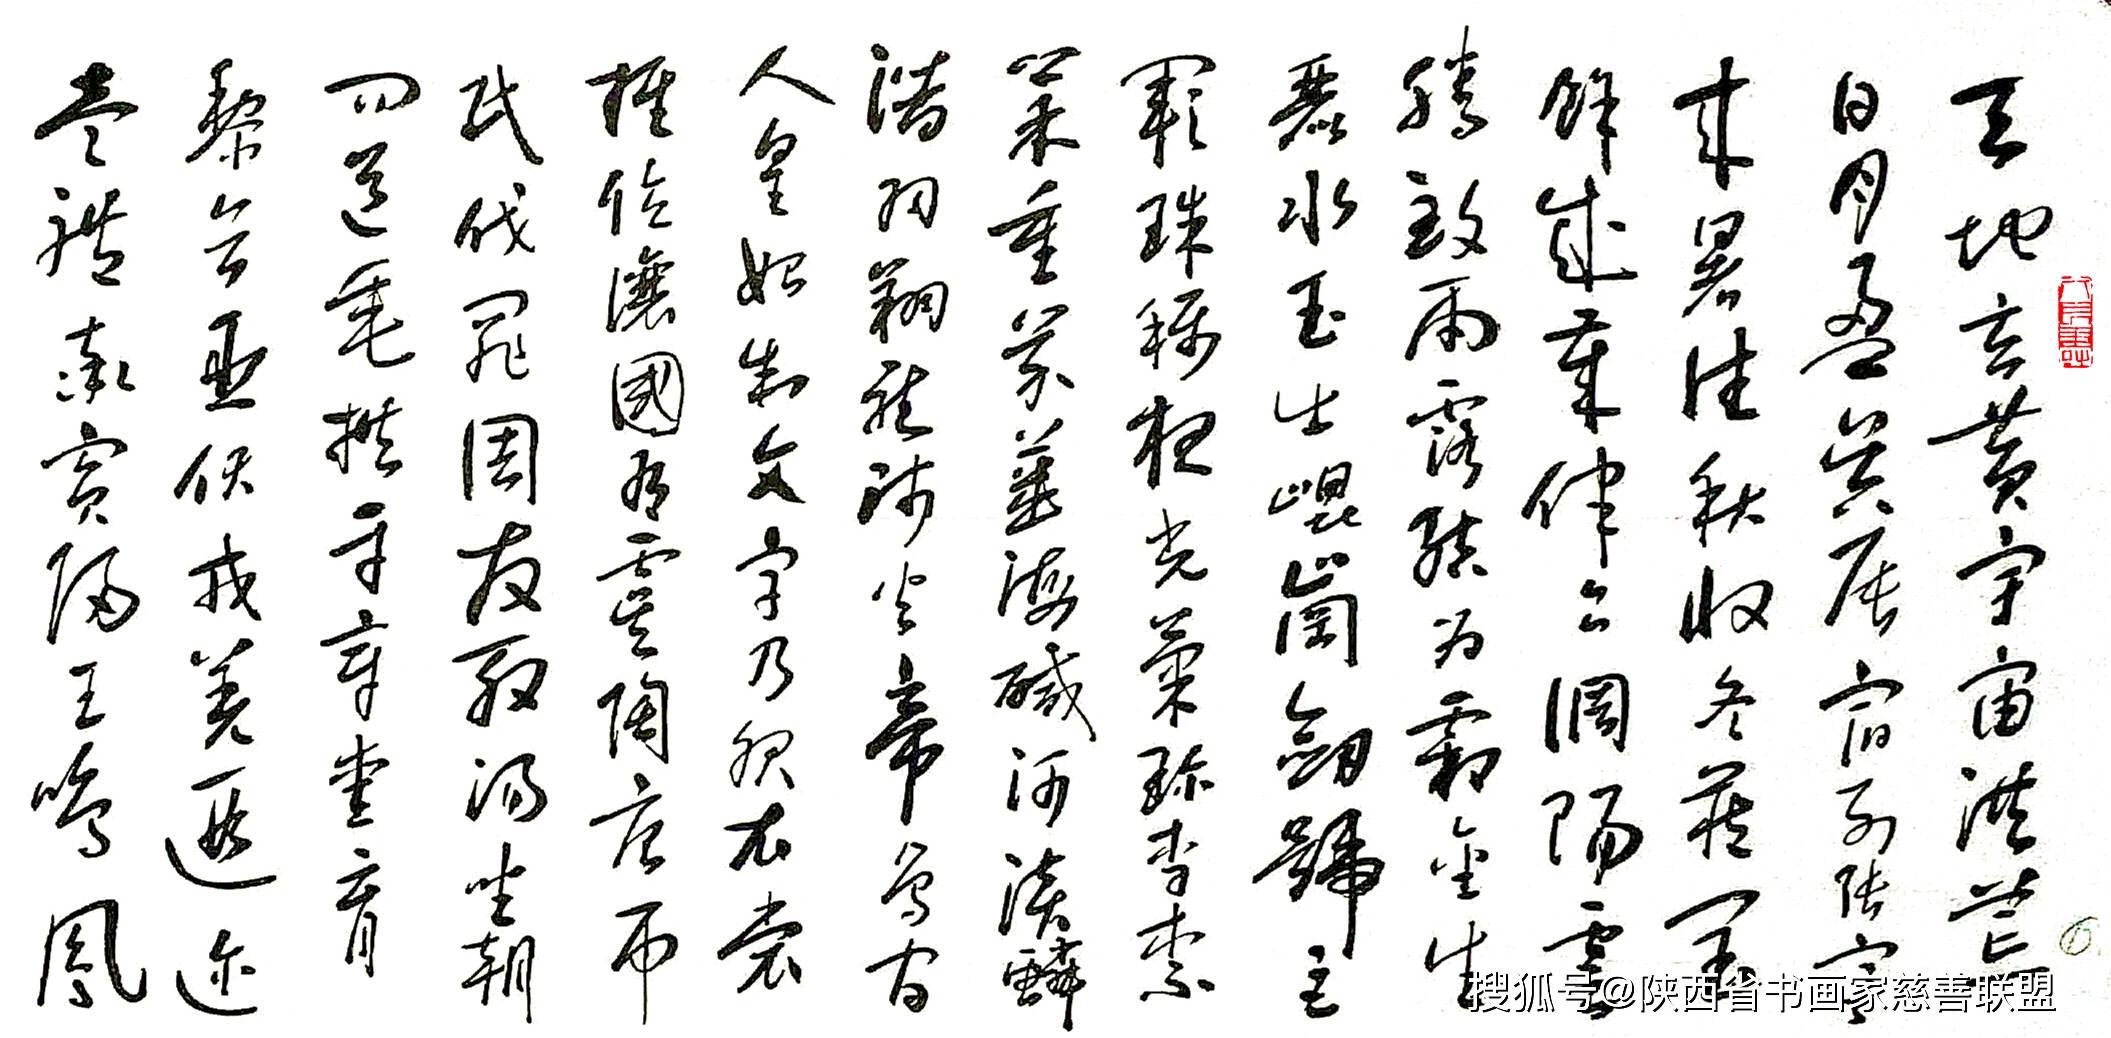 天地玄黄宇宙洪荒
日月盈昃辰宿列张寒
来暑往秋收冬藏闰
馀成岁律吕调阳云
腾致雨露结为霜金生
丽水玉出崑岗剑号巨
阙珠称夜光菓珍李柰
菜重芥薑海碱河淡鳞
潜羽翔龙师火帝鸟官
人皇始制文字乃服衣裳
推位让国有虞陶唐吊
民伐罪周发殷汤坐朝
问道垂拱平章爱育
黎首臣伏戎羌遐迩
壹体率宾归王鸣凤
搜狐号@陕西省书画家慈善联盟